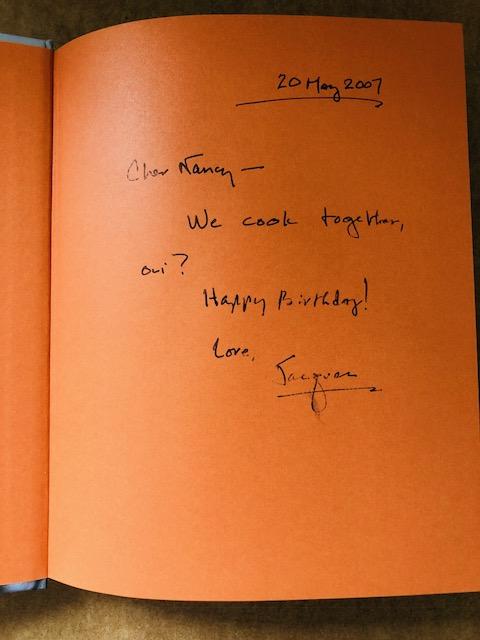 20 May 2007
Cher Nancy —
We cook together,
oui?
Happy Birthday!
Love,
Jacques